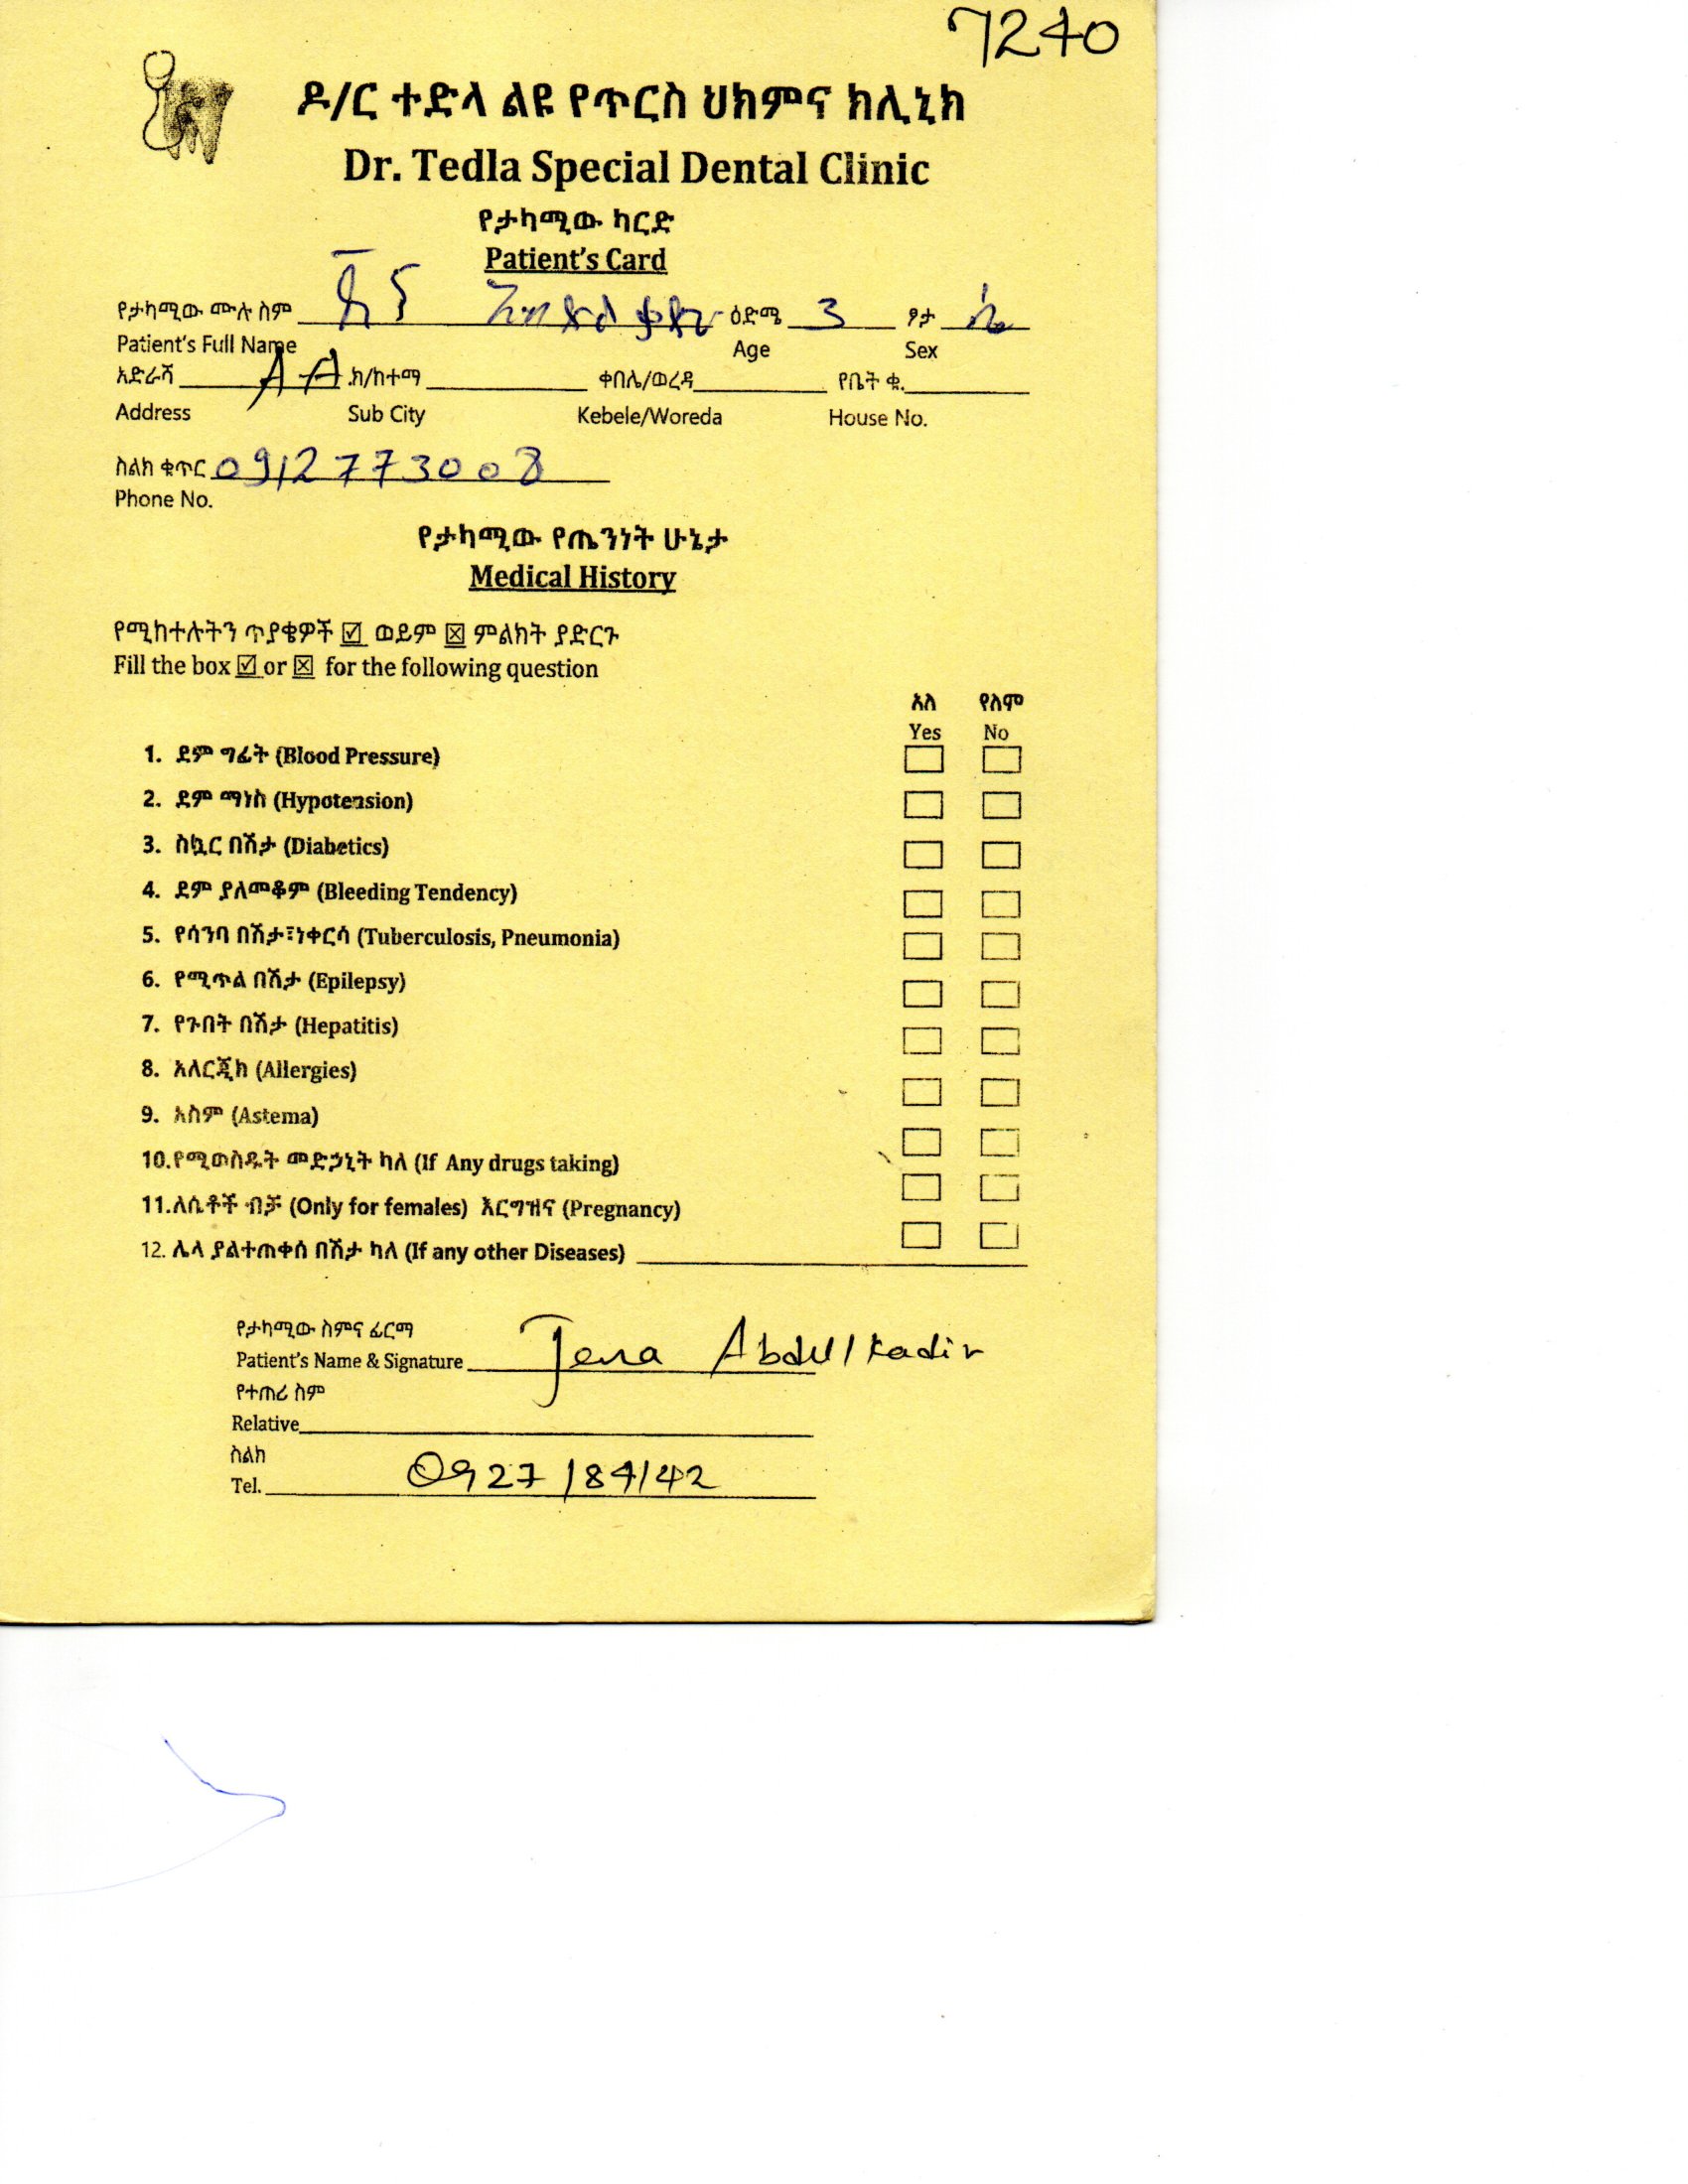 7240
ዶ/ር ተድላ ልዩ የጥርስ ህክምና ክሊኒክ
Dr. Tedla Special Dental Clinic
የታካሚው ካርድ
Patient's Card
የታካሚው ሙሉ ስም ጄና አብዱልቃድር ዕድሜ 3 ፆታ ሴ
Patient's Full Name Age Sex
አድራሻ AA ክ/ከተማ ቀበሌ/ወረዳ የቤት ቁ.
Address Sub City Kebele/Woreda House No.
ስልክ ቁጥር 0912773008
Phone No.
የታካሚው የጤንነት ሁኔታ
Medical History
የሚከተሉትን ጥያቄዎች ☑ ወይም ☒ ምልክት ያድርጉ
Fill the box ☑ or ☒ for the following question
አለ የለም
Yes No
1. ደም ግፊት (Blood Pressure)
2. ደም ማነስ (Hypotension)
3. ስኳር በሽታ (Diabetics)
4. ደም ያለመቆም (Bleeding Tendency)
5. የሳንባ በሽታ፣ነቀርሳ (Tuberculosis, Pneumonia)
6. የሚጥል በሽታ (Epilepsy)
7. የጉበት በሽታ (Hepatitis)
8. አለርጂክ (Allergies)
9. አስም (Astema)
10.የሚወስዱት መድኃኒት ካለ (If Any drugs taking)
11.ለሴቶች ብቻ (Only for females) እርግዝና (Pregnancy)
12. ሌላ ያልተጠቀሰ በሽታ ካለ (If any other Diseases)
የታካሚው ስምና ፊርማ
Patient's Name & Signature Jena Abdulkadir
የተጠሪ ስም
Relative
ስልክ
Tel.